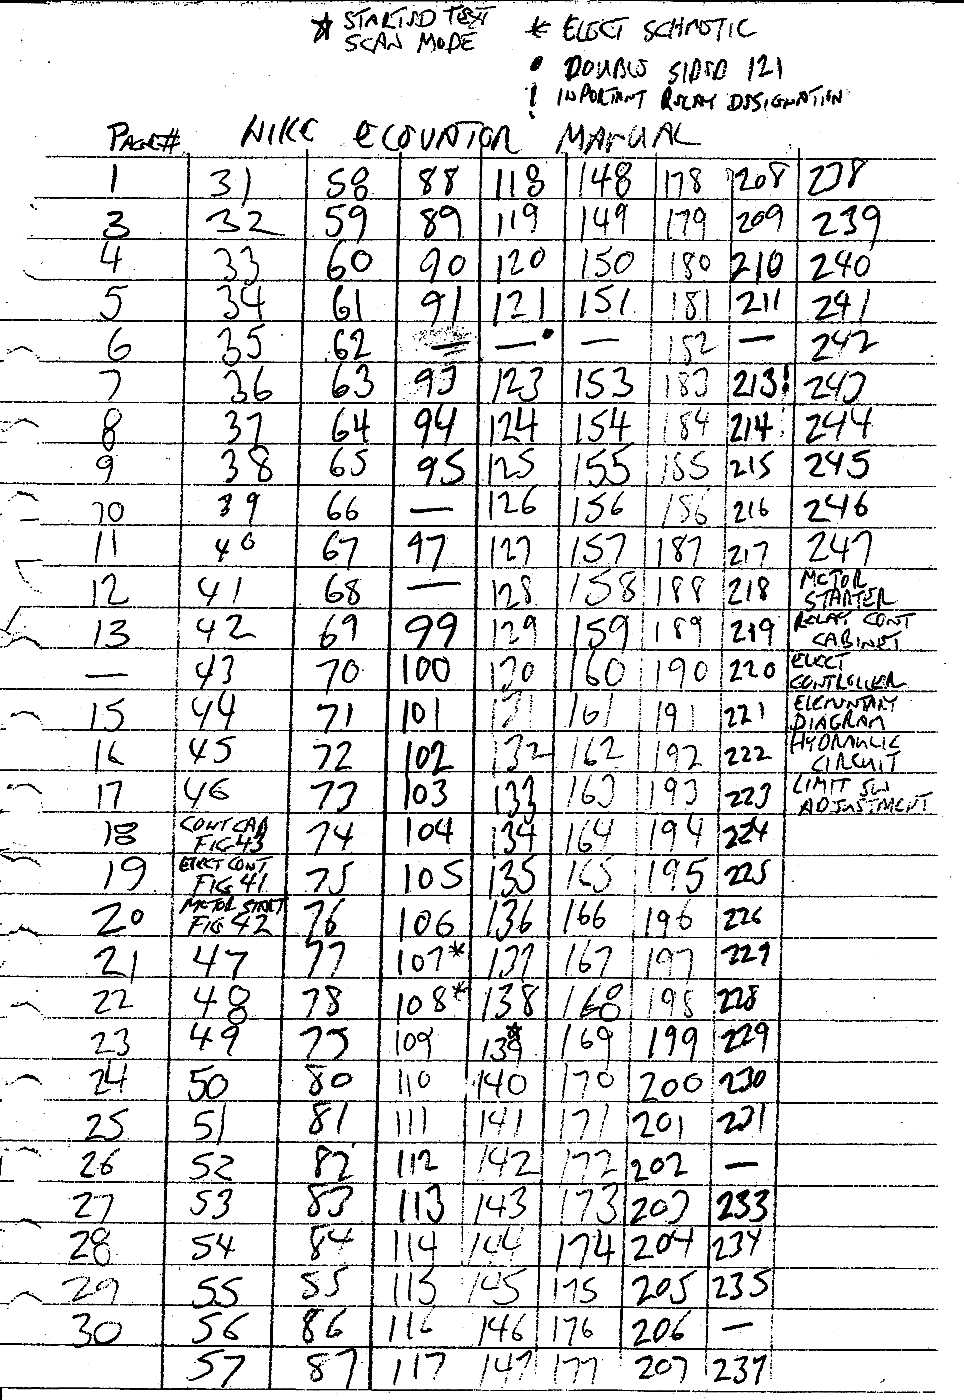 * STARTED TEXT
SCAN MODE
* ELECT SCHMATIC
• DOUBLE SIDED 121
! IMPORTANT RELAY DESIGNATION
PAGE# NIKE ELEVATOR MANUAL
1 31 58 88 118 148 178 208 238
3 32 59 89 119 149 179 209 239
4 33 60 90 120 150 180 210 240
5 34 61 91 121 151 181 211 241
6 35 62 — —• — 152 — 242
7 36 63 93 123 153 183 213! 243
8 37 64 94 124 154 184 214 244
9 38 65 95 125 155 185 215 245
10 39 66 — 126 156 186 216 246
11 40 67 97 127 157 187 217 247
12 41 68 — 128 158 188 218 MOTOR STARTER
13 42 69 99 129 159 189 219 RELAY CONT CABINET
— 43 70 100 130 160 190 220 ELECT CONTROLLER
15 44 71 101 131 161 191 221 ELEMENTARY DIAGRAM
16 45 72 102 132 162 192 222 HYDRAULIC CIRCUIT
17 46 73 103 133 163 193 223 LIMIT SW ADJUSTMENT
18 CONT CAB FIG 43 74 104 134 164 194 224
19 ELECT CONT FIG 41 75 105 135 165 195 225
20 MOTOR START FIG 42 76 106 136 166 196 226
21 47 77 107* 137 167 197 227
22 48 78 108* 138 168 198 228
23 49 79 109 139* 169 199 229
24 50 80 110 140 170 200 230
25 51 81 111 141 171 201 231
26 52 82 112 142 172 202 —
27 53 83 113 143 173 203 233
28 54 84 114 144 174 204 234
29 55 85 115 145 175 205 235
30 56 86 116 146 176 206 —
57 87 117 147 177 207 237